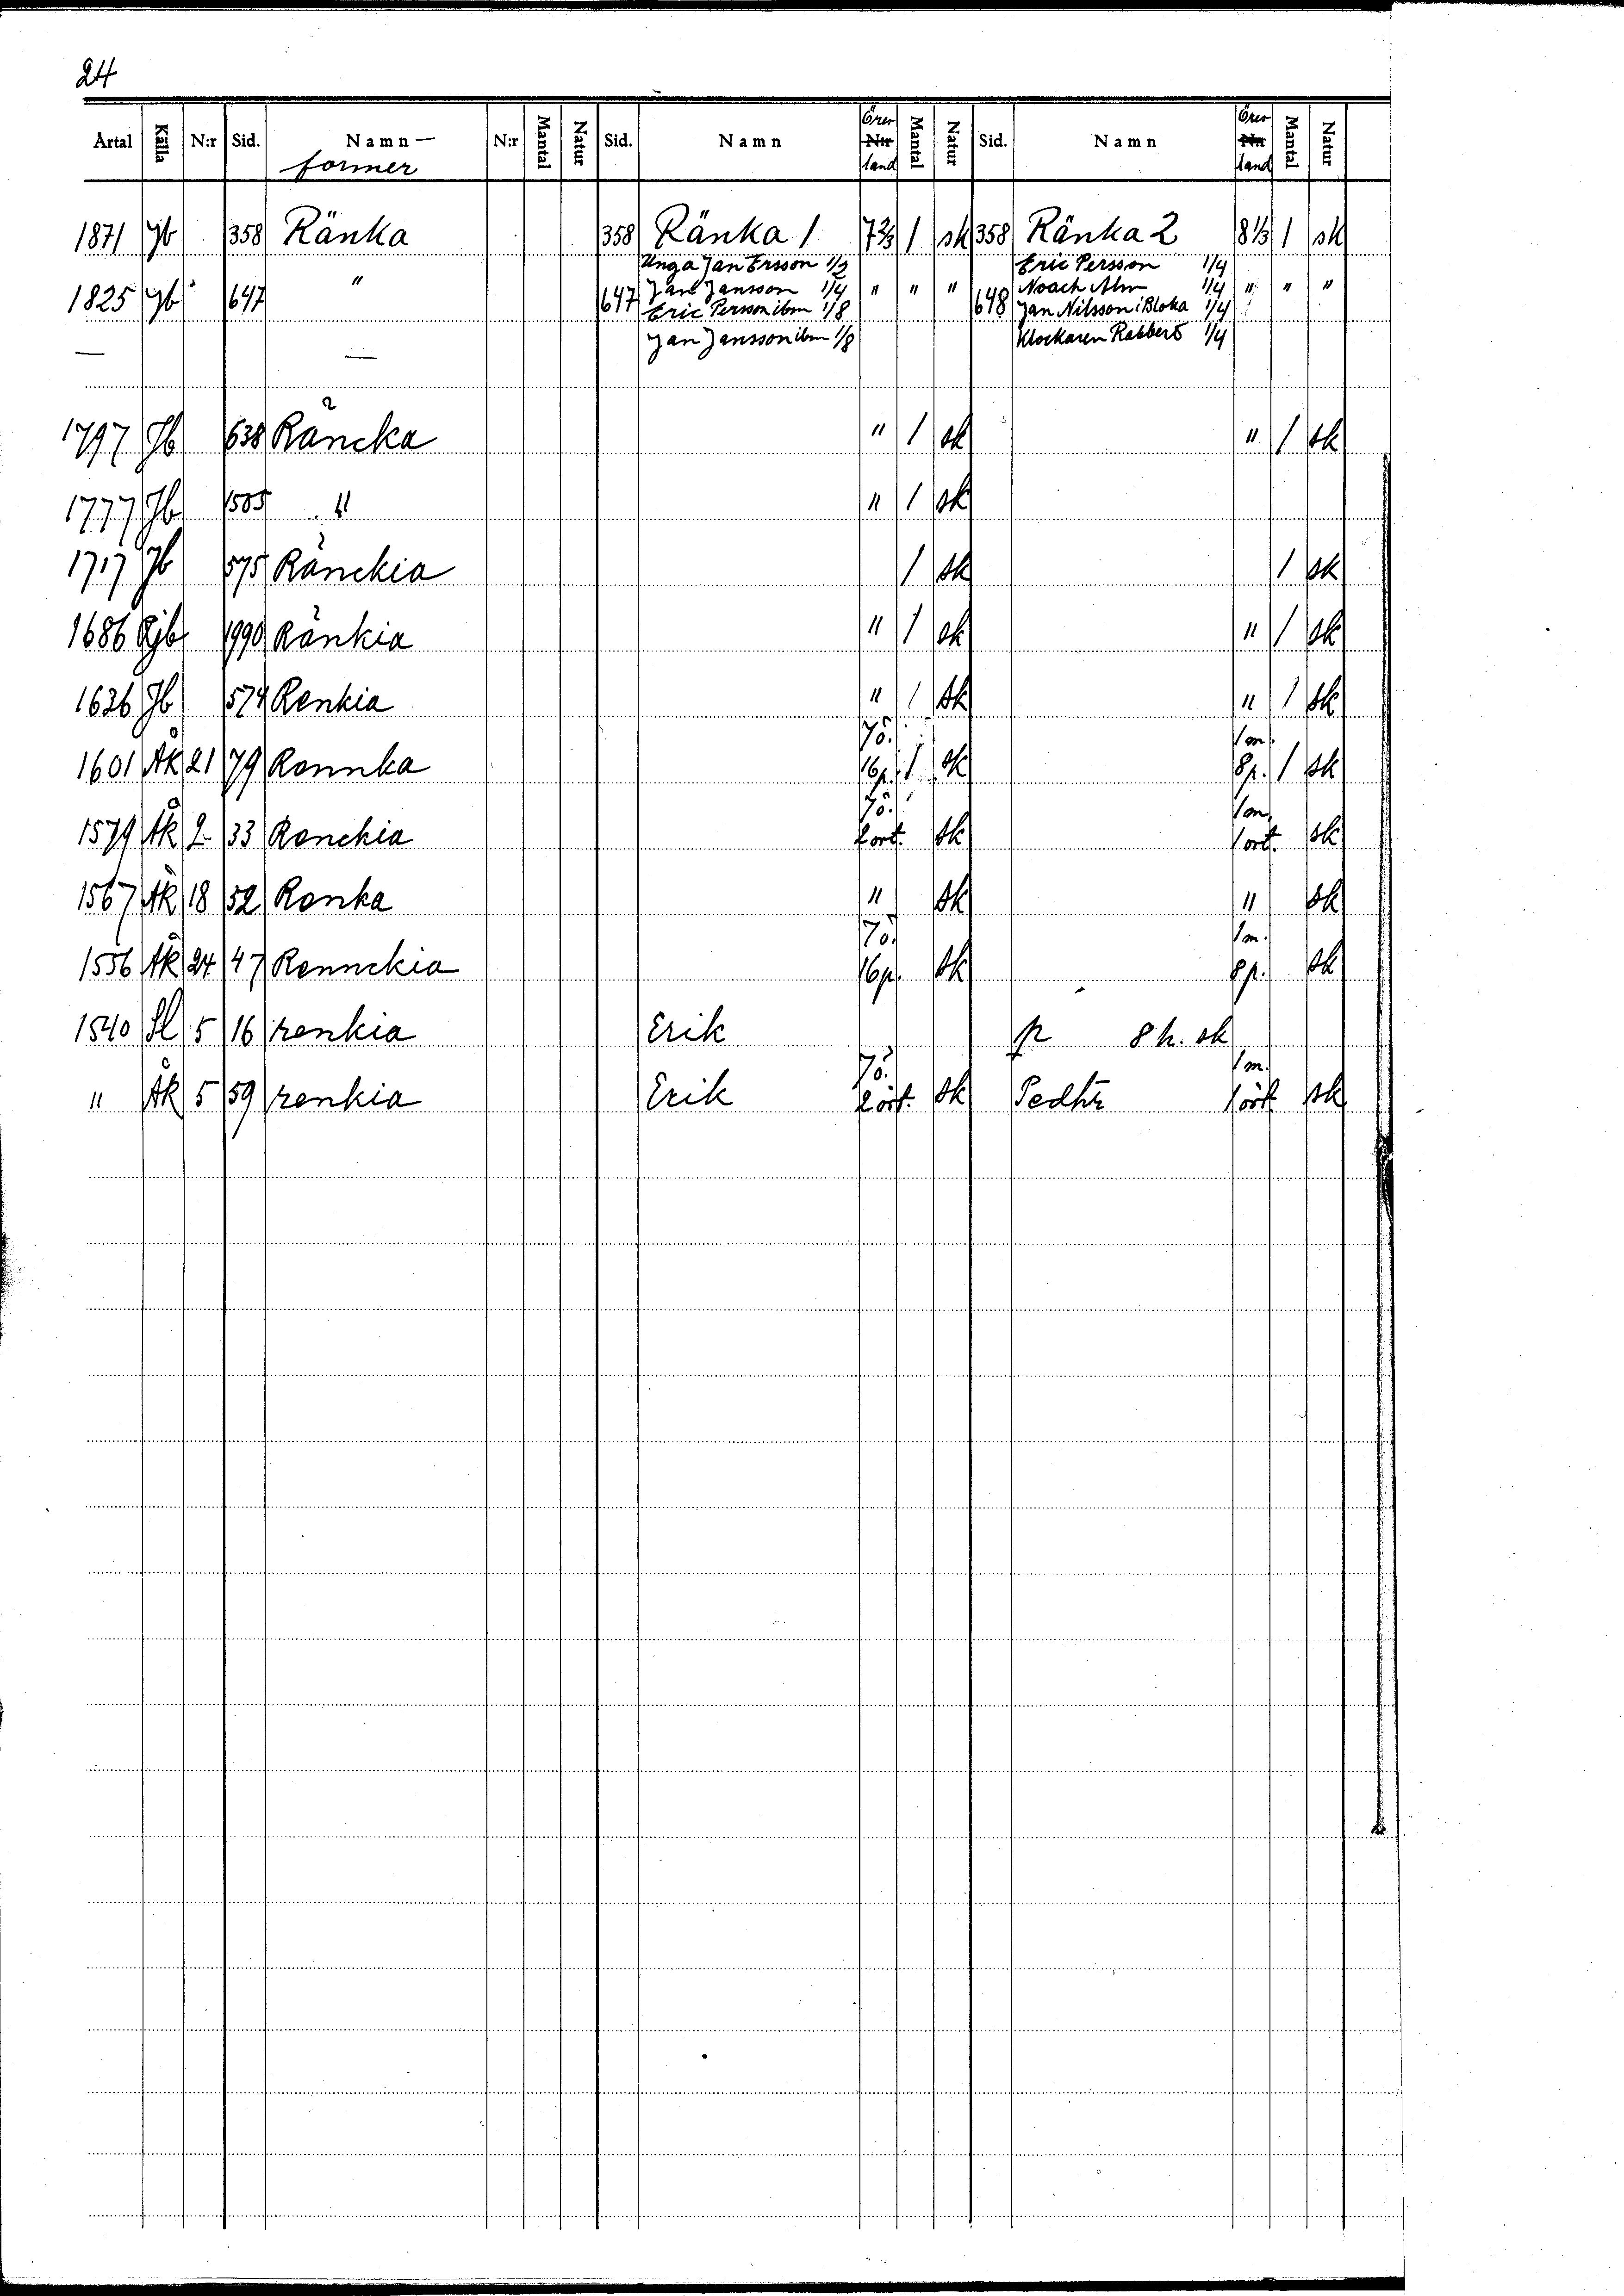 24
Årtal Källa N:r Sid. Namn— former N:r Mantal Natur Sid. Namn Öres land Mantal Natur Sid. Namn Öres land Mantal Natur
1871 Jb 358 Ränka 358 Ränka 1 7 2/3 1 sk 358 Ränka 2 8 1/3 1 sk
Unga Jan Ersson 1/2 Eric Persson 1/4
1825 Jb 647 " 647 Jan Jansson 1/4 " " " 648 Noach Alm 1/4 " " "
Eric Persson ibm 1/8 Jan Nilsson i Bloka 1/4
— — Jan Jansson ibm 1/8 Klockaren Rabbert 1/4
1797 Jb 638 Räncka " 1 sk " 1 sk
1777 Jb 1505 " " 1 sk
1717 Jb 575 Ränckia 1 sk 1 sk
1686 Rjb 1990 Ränkia " 1 sk " 1 sk
1636 Jb 574 Renkia " 1 sk " 1 sk
7ö. 1m.
1601 Åk 21 79 Rennka 16p. 1 sk 8p. 1 sk
7ö. 1m.
1579 Åk 2 33 Renckia 2 ört. sk 1 ört. sk
1567 Åk 18 52 Renka " sk " sk
7ö. 1m.
1556 Åk 24 47 Rennckia 16p. sk 8p. sk
1540 Sl 5 16 renkia Erik p 8 h. sk
7ö. 1m.
" Åk 5 59 renkia Erik 2 ört. sk Pedhr 1 ört sk